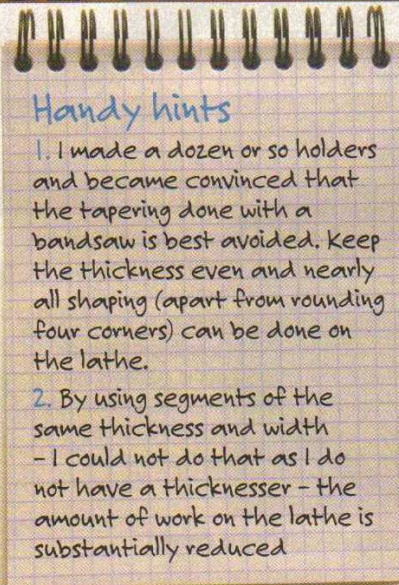 Handy hints
1. I made a dozen or so holders
and became convinced that
the tapering done with a
bandsaw is best avoided. Keep
the thickness even and nearly
all shaping (apart from rounding
four corners) can be done on
the lathe.
2. By using segments of the
same thickness and width
– I could not do that as I do
not have a thicknesser – the
amount of work on the lathe is
substantially reduced